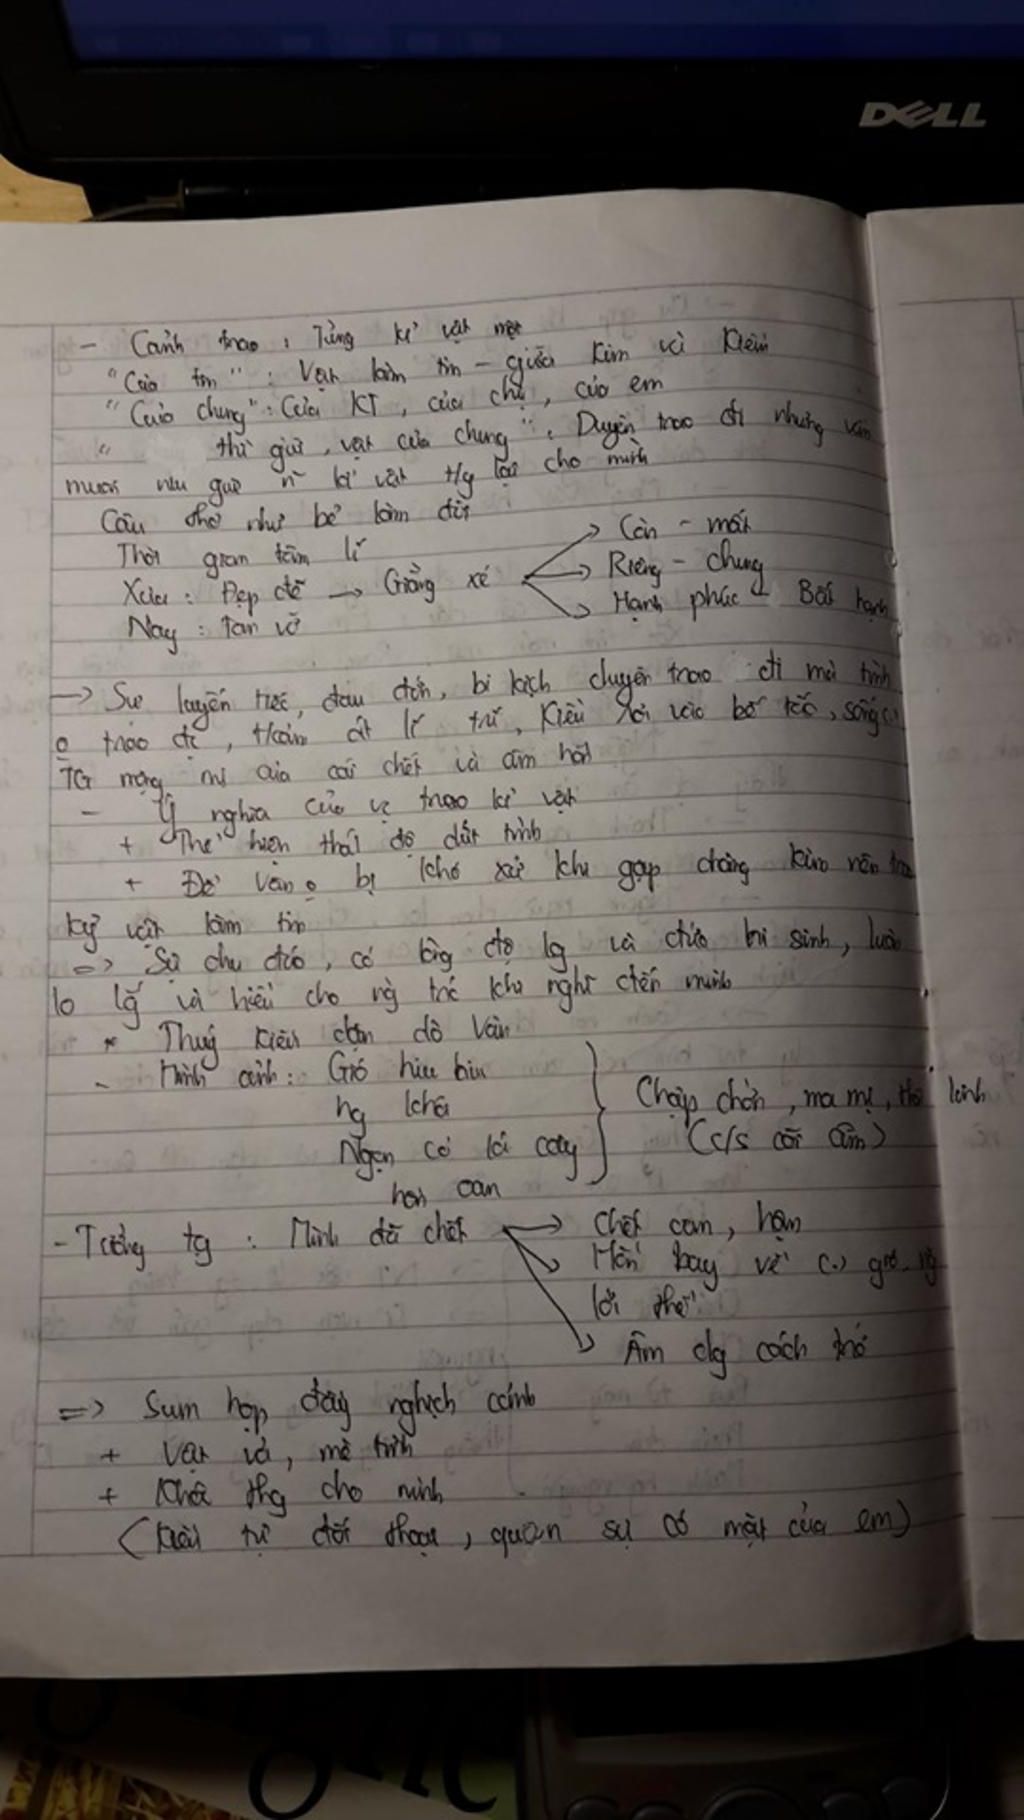 DELL
- Cảnh trao : Từng kỉ vật một
"Của tin" : Vật làm tin - giữa Kim và Kiều
"Của chung" : Của KT, của chị, của em
" thì giữ, vật của chung" : Duyên trao đi nhưng vẫn
muốn níu giữ kỉ vật lại cho mình
Câu thơ như bẻ làm đôi
Thời gian tâm lí
Xưa : Đẹp đẽ → Giằng xé
Còn - mất
Riêng - chung
Hạnh phúc - Bất hạnh
Nay : tan vỡ
→ Sự luyến tiếc, đau đớn, bi kịch duyên trao đi mà tình
o trao đi, lí trí, Kiều rơi vào bế tắc, sống
TG mộng mị của cái chết và âm hồn
- Ý nghĩa của vc trao kỉ vật
+ Thể hiện thái độ dứt tình
+ Để Vân o bị khó xử khi gặp chàng Kim nên trao
kỷ vật làm tin
=> Sự chu đáo, có lòng độ lg và đức hi sinh, luôn
lo lắng và hiểu cho ng khác khi nghĩ đến mình
* Thuý Kiều dặn dò Vân
- Hình ảnh : Gió hiu hiu
Ngọn cỏ lá cây
hồn oan
Chập chờn, ma mị, thê lương
(c/s cõi âm)
- Tưởng tg : Mình đã chết
→ Chết oan, hận
→ Hồn bay về gió
lời thề
→ Âm dg cách trở
=> Sum họp đầy nghịch cảnh
+ Vật vã, mê tình
+ Khóc thg cho mình
(Kiều tự đối thoại, quên sự có mặt của em)